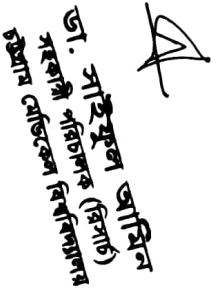 ডা. সাইফুল আমিন
সহকারী পরিচালক (রিসার্চ)
চট্টগ্রাম মেডিকেল বিশ্ববিদ্যালয়